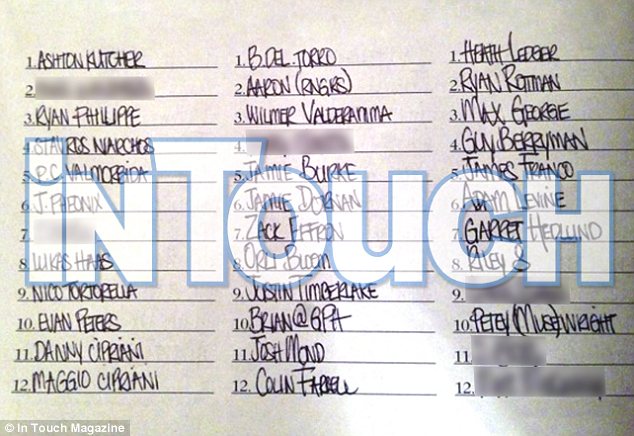 1. ASHTON KUTCHER
2.
3. RYAN PHILIPPE
4. STAVROS NIARCHOS
5. P.C. VALMORBIDA
6. J. PHEONIX
7.
8. LUKAS HAAS
9. NICO TORTORELLA
10. EVAN PETERS
11. DANNY CIPRIANI
12. MAGGIO CIPRIANI
1. B. DEL TORRO
2. AARON (RNGRS)
3. WILMER VALDERAMMA
4.
5. JAMIE BURKE
6. JAMIE DORNAN
7. ZACK EFFRON
8. ORLI BLOOM
9. JUSTIN TIMBERLAKE
10. BRIAN@GPH
11. JOSH MOND
12. COLIN FARRELL
1. HEATH LEDGER
2. RYAN ROTTMAN
3. MAX GEORGE
4. GUY BERRYMAN
5. JAMES FRANCO
6. ADAM LEVINE
7. GARRET HEDLUND
8. RILEY S
9.
10. PETEY (MUSE) WRIGHT
11.
12.
INTOUCH
© In Touch Magazine